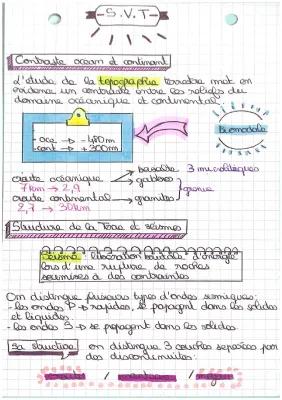 S.V.T
Contraste océan et continent
L'étude de la topographie terrestre met en
évidence un contraste entre les reliefs du
domaine océanique et continental.
Bimodale
- oce → - 4810m
- cont → + 300m
croûte océanique → basalte 3 
→ gabbros
7km → 2,9
croûte continentale → granite
2,7 → 30km
Structure de la Terre et séismes
Séisme : libération brutale d'énergie
lors d'une rupture de roches
soumises à des contraintes
On distingue plusieurs types d'ondes sismiques:
- les ondes P → rapides, se propagent dans les solides
et liquides.
- les ondes S → se propagent dans les solides
Sa structure → on distingue 3 couches séparées par
des discontinuités:
croûte / manteau / noyau